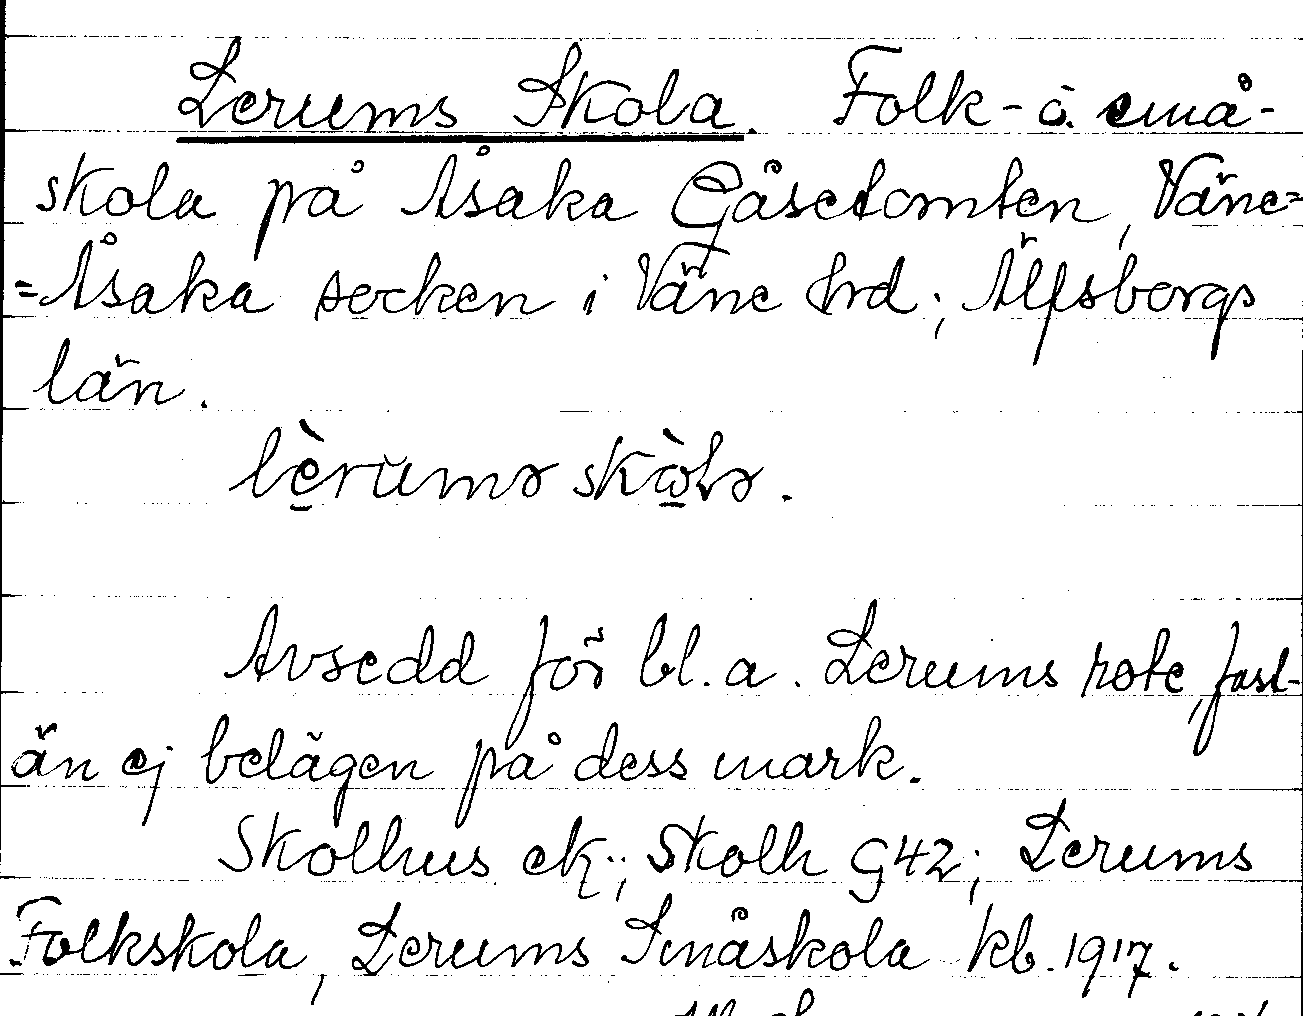 Lerums Skola. Folk- o. små-
skola på Åsaka Gåsetomten, Väne=
=Åsaka socken i Väne hrd; Älfsborgs
län.
lèrumə skò̱lə.
Avsedd för bl.a. Lerums rote, fast-
än ej belägen på dess mark.
Skolhus ek.; Skolh G42; Lerums
Folkskola, Lerums Småskola kb. 1917.